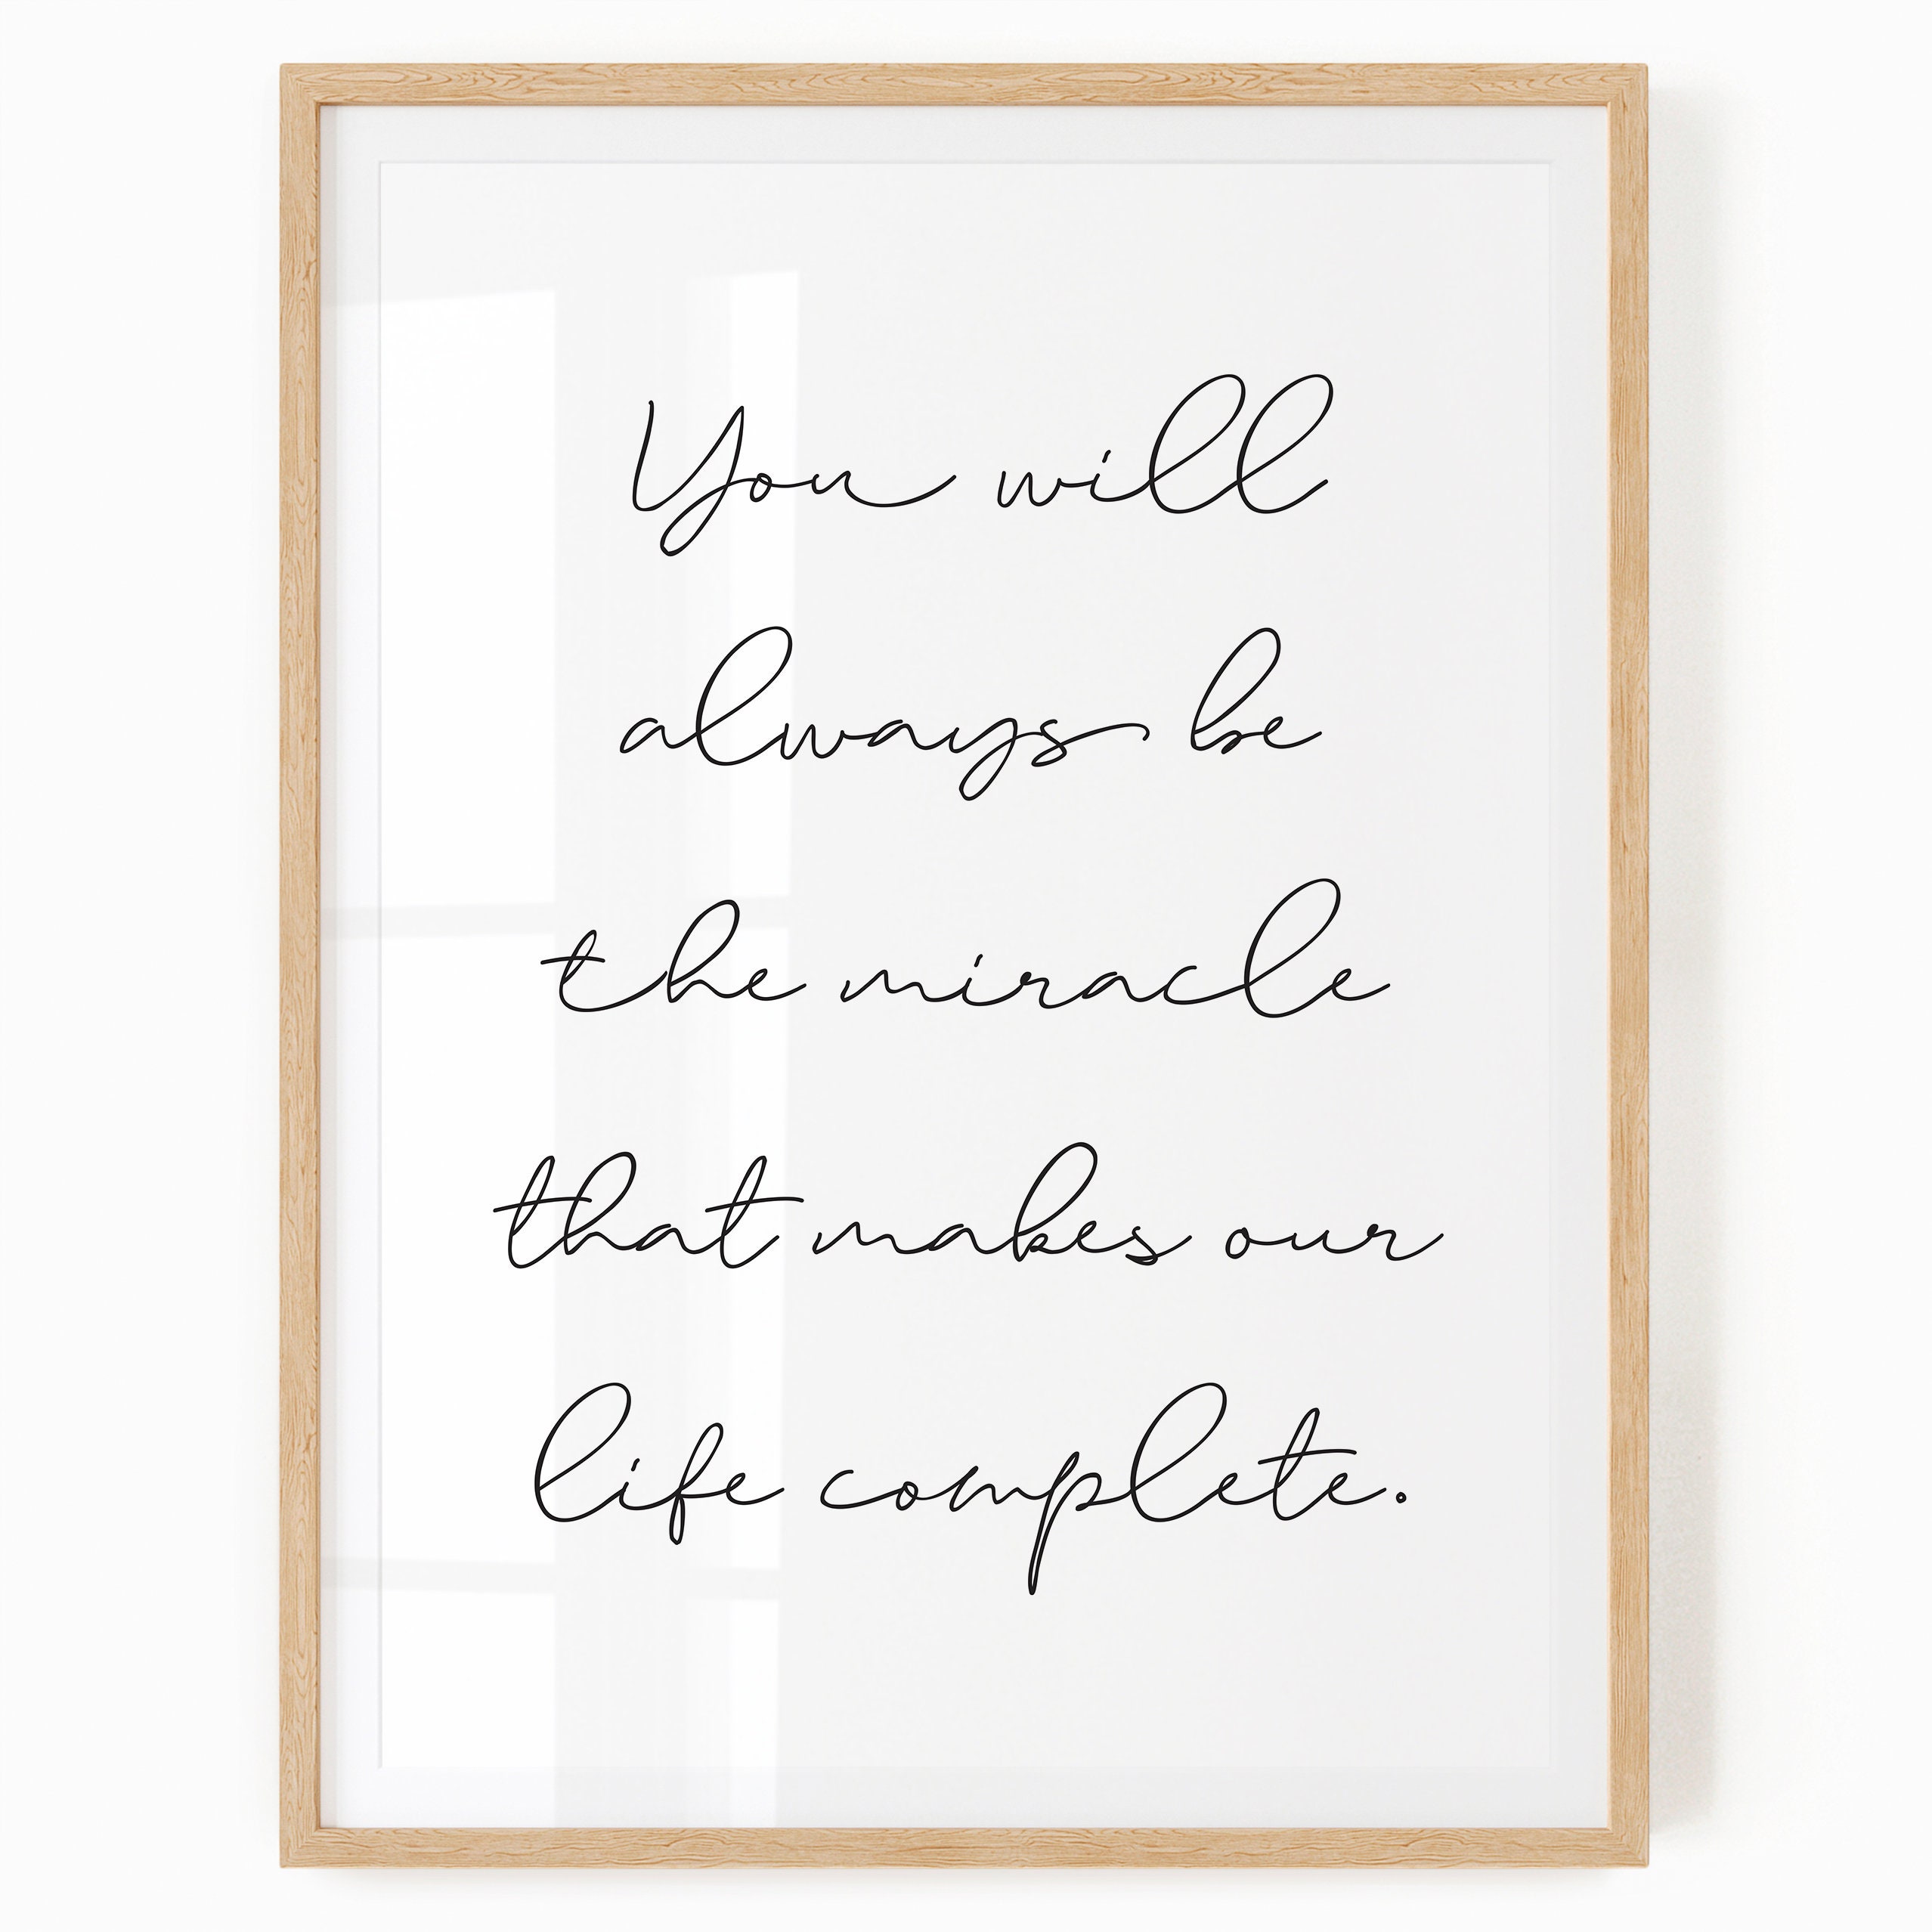 You will
always be
the miracle
that makes our
life complete.